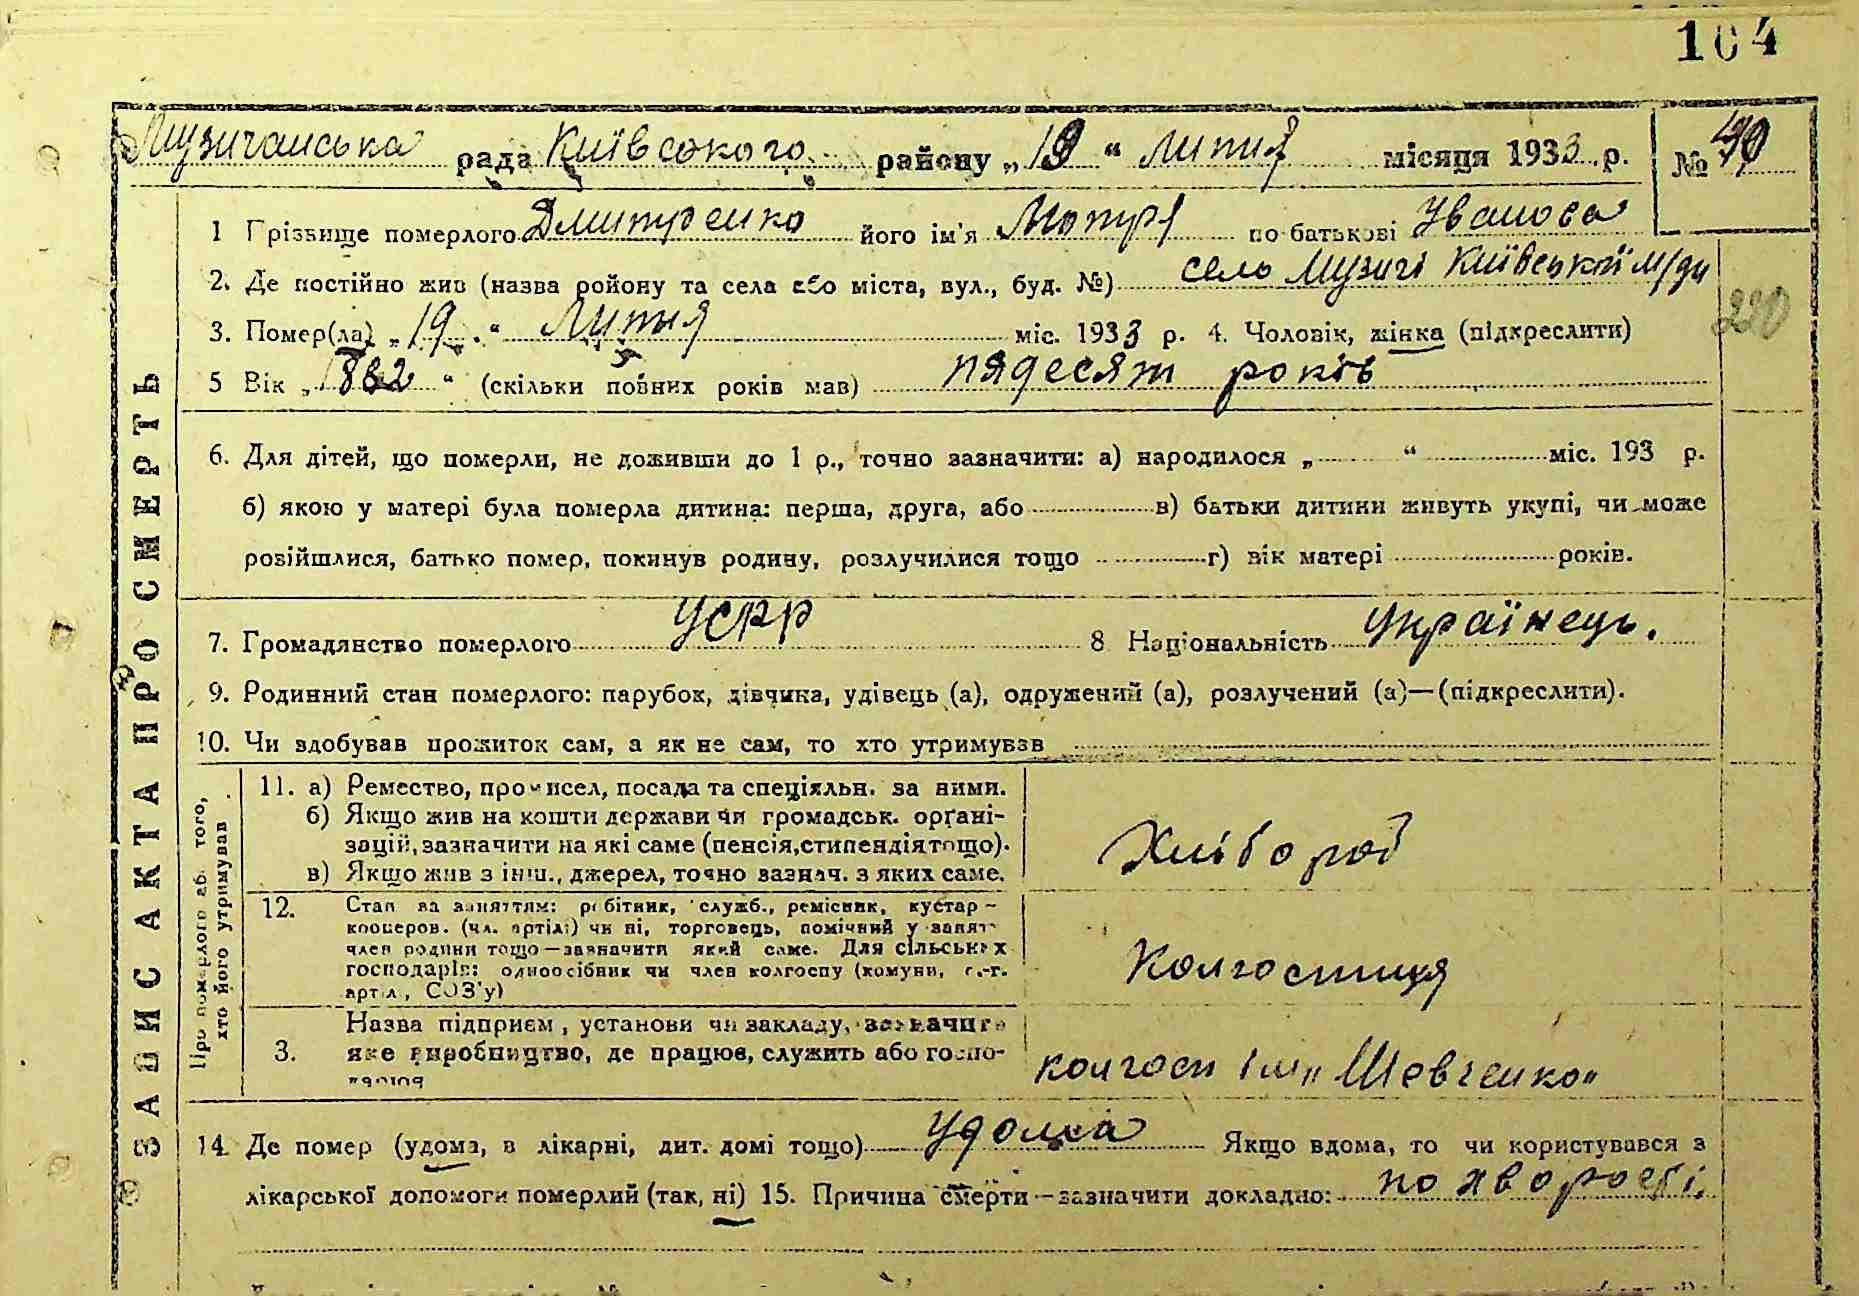 104
Музичанська рада Київсокого району „19“ липня місяця 1933 р. № 90
1 Прізвище померлого Дмитренко його ім'я Мотря по батькові Іванова
2. Де постійно жив (назва ройону та села або міста, вул., буд. №) село Музичі Київської м/ди
3. Помер(ла) „19.“ Липня міс. 1933 р. 4. Чоловік, жінка (підкреслити)
220
5 Вік „1882“ (скільки повних років мав) пядесят років
6. Для дітей, що померли, не доживши до 1 р., точно зазначити: а) народилося „ “ міс. 193 р.
б) якою у матері була померла дитина: перша, друга, або в) батьки дитини живуть укупі, чи може
розійшлися, батько помер, покинув родину, розлучилися тощо г) вік матері років.
7. Громадянство померлого УСРР 8 Національність Українець.
9. Родинний стан померлого: парубок, дівчина, удівець (а), одружений (а), розлучений (а)—(підкреслити).
10. Чи здобував прожиток сам, а як не сам, то хто утримував
11. а) Ремество, промисел, посада та спеціяльн. за ними.
б) Якщо жив на кошти держави чи громадськ. орґані-
зацій, зазначити на які саме (пенсія, стипендія тощо).
в) Якщо жив з інш., джерел, точно зазнач. з яких саме.
Хлібороб
12. Стан за заняттям: робітник, служб., ремісник, кустар-
кооперов. (чл. артілі) чи ні, торговець, помічний у занят.
член родини тощо—зазначити який саме. Для сільських
господарів: одноосібник чи член колгоспу (комуни, с.-г.
артіл, СОЗ'у)
Колгоспниця
Назва підприєм, установи чи закладу, зазначити
3. яке виробництво, де працює, служить або госпо-
дарює
колгосп ім „Шевченко„
14. Де помер (удома, в лікарні, дит. домі тощо) удома Якщо вдома, то чи користувався з
лікарської допомоги померлий (так, ні) 15. Причина смерти—зазначити докладно: по хворості.
ЗАПИС АКТА ПРО СМЕРТЬ
Про померлого аб. того,
хто його утримував